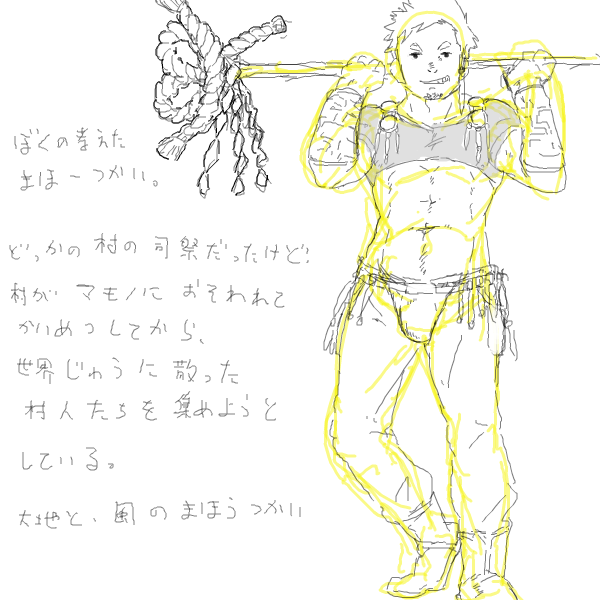 ぼくの考えた
まほーつかい。
どっかの村の司祭だったけど、
村がマモノにおそわれて
かいめつしてから、
世界じゅうに散った
村人たちを集めようと
している。
大地と、風のまほうつかい